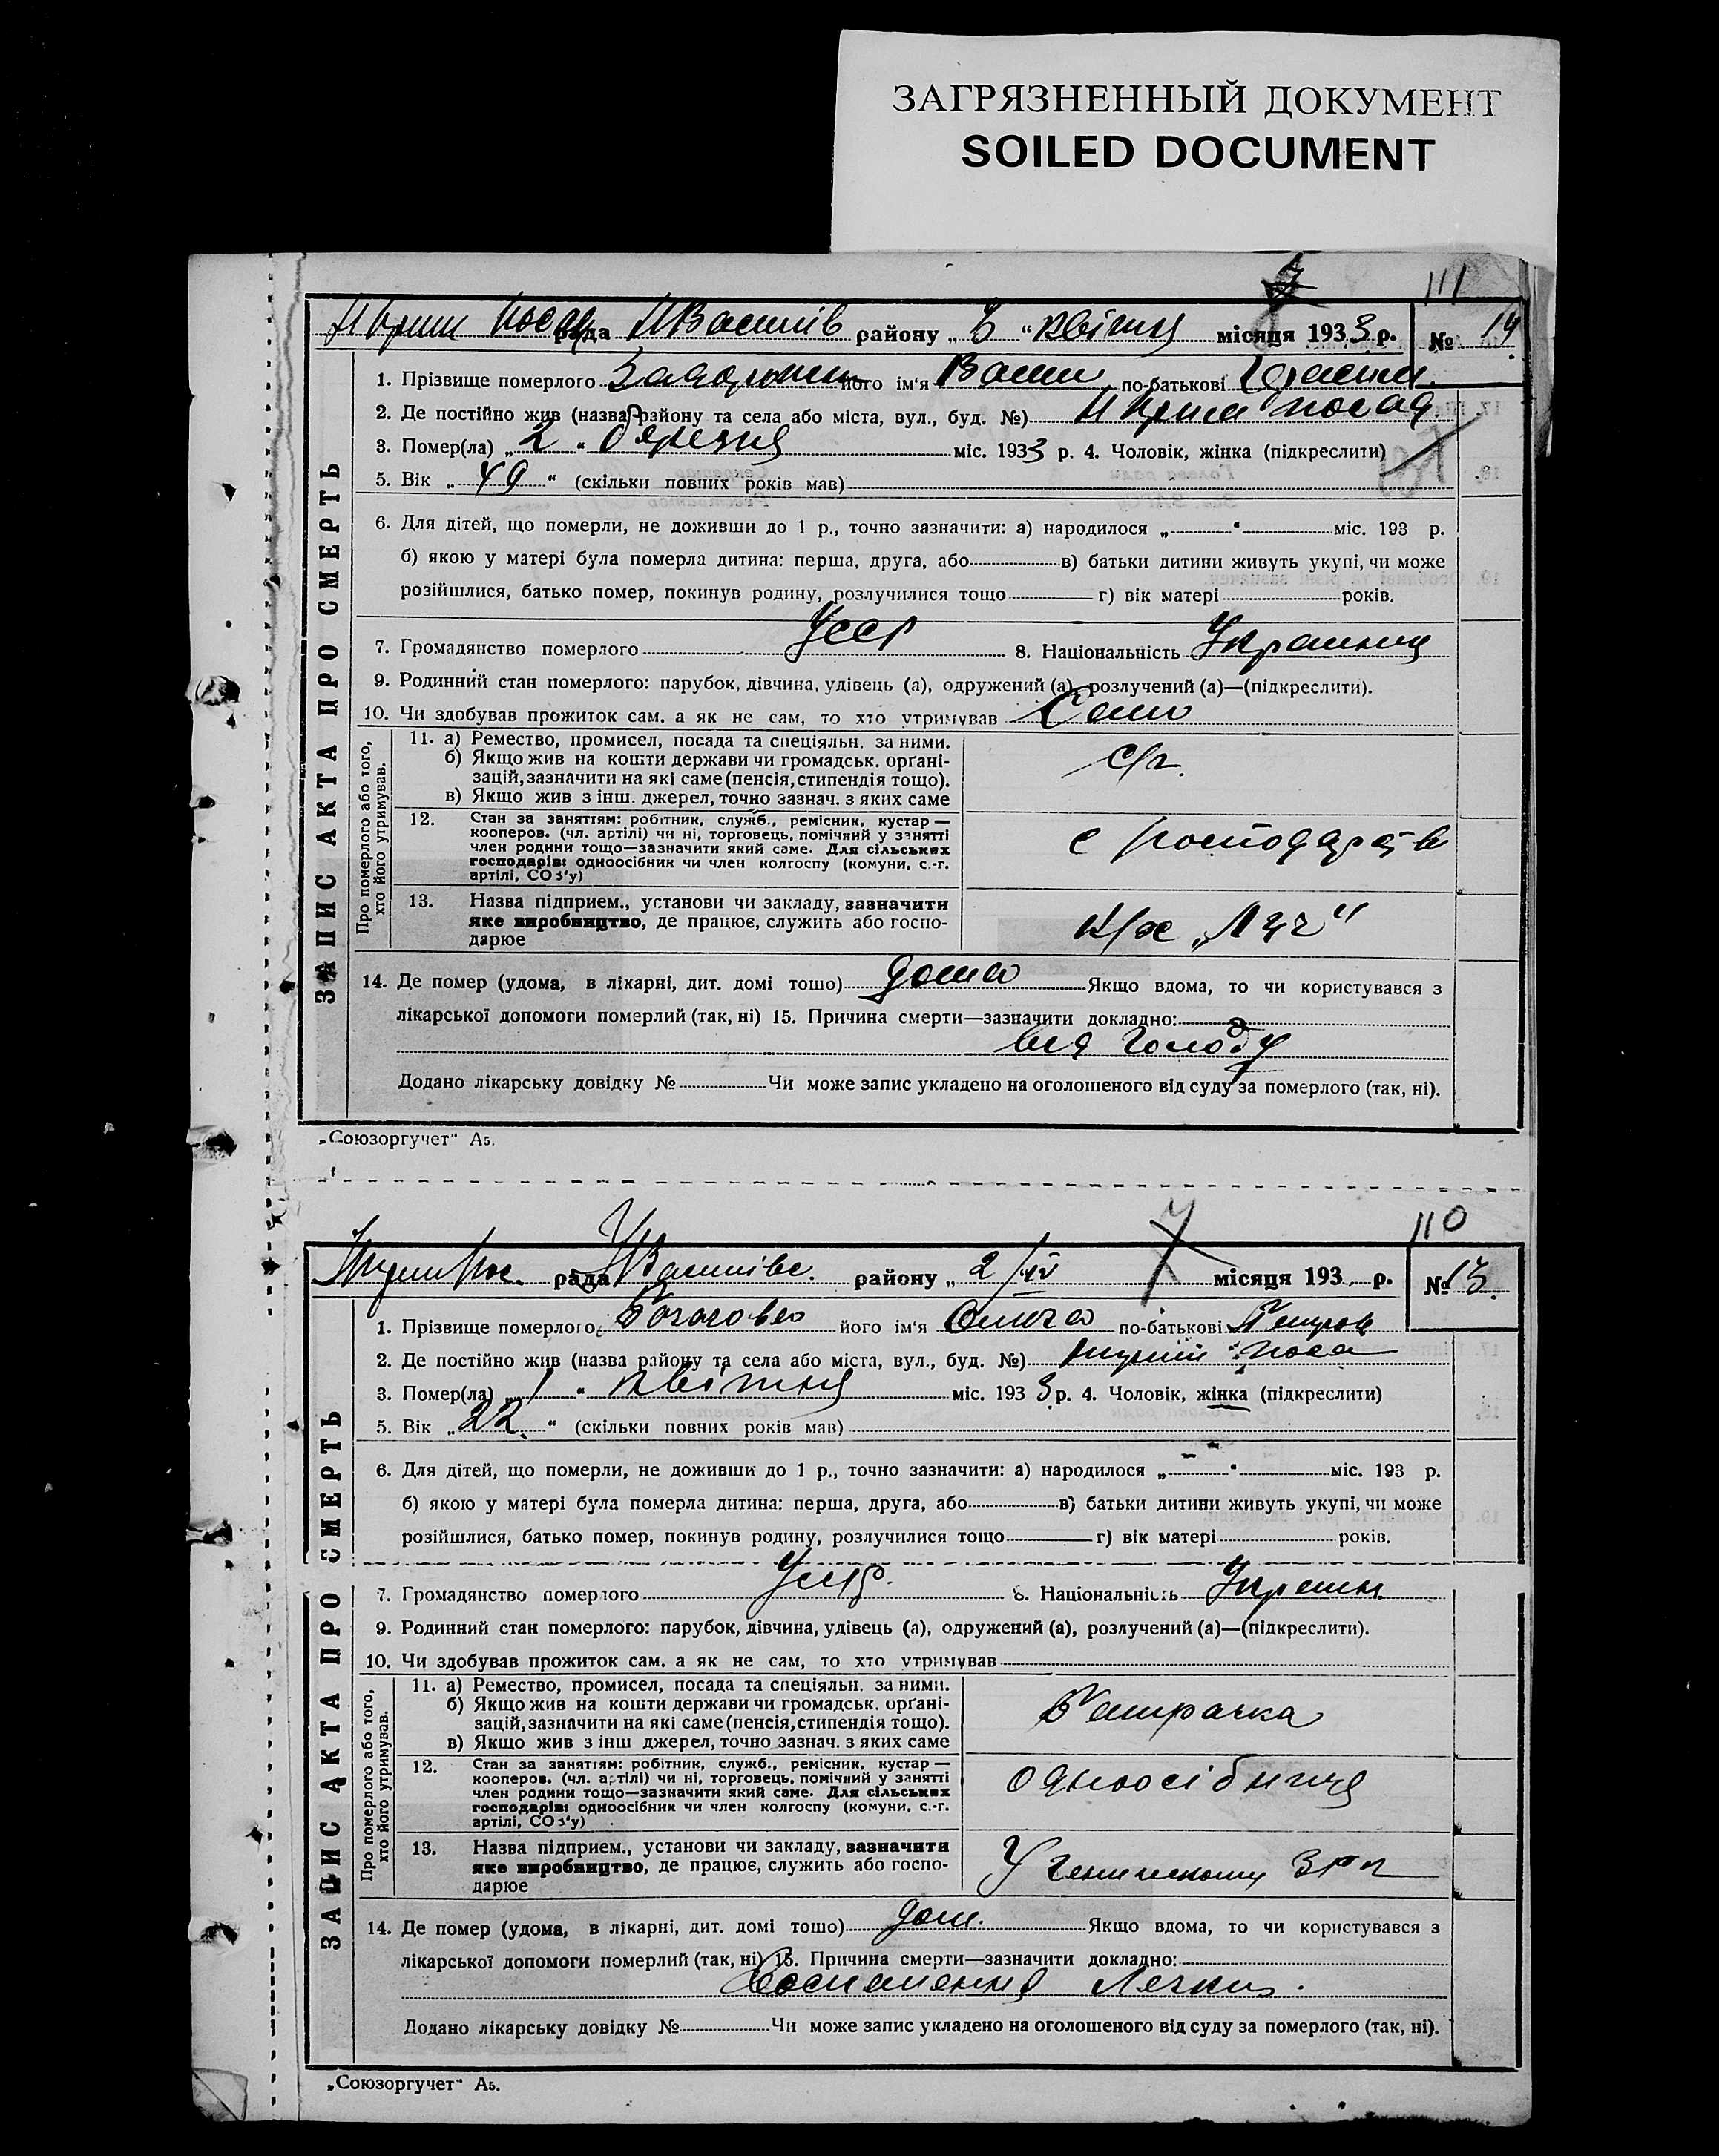 ЗАГРЯЗНЕННЫЙ ДОКУМЕНТ
SOILED DOCUMENT
111
рада району „ 3 “ квітня місяця 1933 р. № 14
1. Прізвище померлого його ім'я по-батькові
2. Де постійно жив (назва району та села або міста, вул., буд. №)
3. Помер(ла) „ 2 “ міс. 1933 р. 4. Чоловік, жінка (підкреслити)
5. Вік „ 49 “ (скільки повних років мав)
6. Для дітей, що померли, не доживши до 1 р., точно зазначити: а) народилося „ “ міс. 193 р.
б) якою у матері була померла дитина: перша, друга, або в) батьки дитини живуть укупі, чи може
розійшлися, батько помер, покинув родину, розлучилися тощо г) вік матері років.
7. Громадянство померлого УССР 8. Національність
9. Родинний стан померлого: парубок, дівчина, удівець (а), одружений (а), розлучений (а)—(підкреслити).
10. Чи здобував прожиток сам, а як не сам, то хто утримував Само
ЗАПИС АКТА ПРО СМЕРТЬ
Про померлого або того,
хто його утримував.
11. а) Ремество, промисел, посада та спеціяльн. за ними.
б) Якщо жив на кошти держави чи громадськ. орґані-
зацій, зазначити на які саме (пенсія, стипендія тощо).
в) Якщо жив з інш. джерел, точно зазнач. з яких саме
с/г.
12. Стан за заняттям: робітник, служб., ремісник, кустар —
кооперов. (чл. артілі) чи ні, торговець, помічний у занятті
член родини тощо—зазначити який саме. Для сільських
господарів: одноосібник чи член колгоспу (комуни, с.-г.
артілі, СОЗ'у)
13. Назва підприєм., установи чи закладу, зазначити
яке виробництво, де працює, служить або госпо-
дарює
к/г „Луч“
14. Де помер (удома, в лікарні, дит. домі тощо) дома Якщо вдома, то чи користувався з
лікарської допомоги померлий (так, ні) 15. Причина смерти—зазначити докладно:
від голоду
Додано лікарську довідку № Чи може запис укладено на оголошеного від суду за померлого (так, ні).
„Союзоргучет“ А5.
110
рада району „ 2/IV місяця 193 р. № 13.
1. Прізвище померлого його ім'я Ольга по-батькові Петров
2. Де постійно жив (назва району та села або міста, вул., буд. №)
3. Помер(ла) „ 1 “ квітня міс. 1933 р. 4. Чоловік, жінка (підкреслити)
5. Вік „ 22. “ (скільки повних років мав)
6. Для дітей, що померли, не доживши до 1 р., точно зазначити: а) народилося „ “ міс. 193 р.
б) якою у матері була померла дитина: перша, друга, або в) батьки дитини живуть укупі, чи може
розійшлися, батько помер, покинув родину, розлучилися тощо г) вік матері років.
7. Громадянство померлого УССР. 8. Національність Украин.
9. Родинний стан померлого: парубок, дівчина, удівець (а), одружений (а), розлучений (а)—(підкреслити).
10. Чи здобував прожиток сам, а як не сам, то хто утримував
ЗАПИС АКТА ПРО СМЕРТЬ
Про померлого або того,
хто його утримував.
11. а) Ремество, промисел, посада та спеціяльн. за ними.
б) Якщо жив на кошти держави чи громадськ. орґані-
зацій, зазначити на які саме (пенсія, стипендія тощо).
в) Якщо жив з інш джерел, точно зазнач. з яких саме
Батрачка
12. Стан за заняттям: робітник, служб., ремісник, кустар —
кооперов. (чл. артілі) чи ні, торговець, помічний у занятті
член родини тощо—зазначити який саме. Для сільських
господарів: одноосібник чи член колгоспу (комуни, с.-г.
артілі, СОЗ'у)
одноосібниця
13. Назва підприєм., установи чи закладу, зазначити
яке виробництво, де працює, служить або госпо-
дарює
14. Де помер (удома, в лікарні, дит. домі тощо) дом. Якщо вдома, то чи користувався з
лікарської допомоги померлий (так, ні) 15. Причина смерти—зазначити докладно:
Додано лікарську довідку № Чи може запис укладено на оголошеного від суду за померлого (так, ні).
„Союзоргучет“ А5.